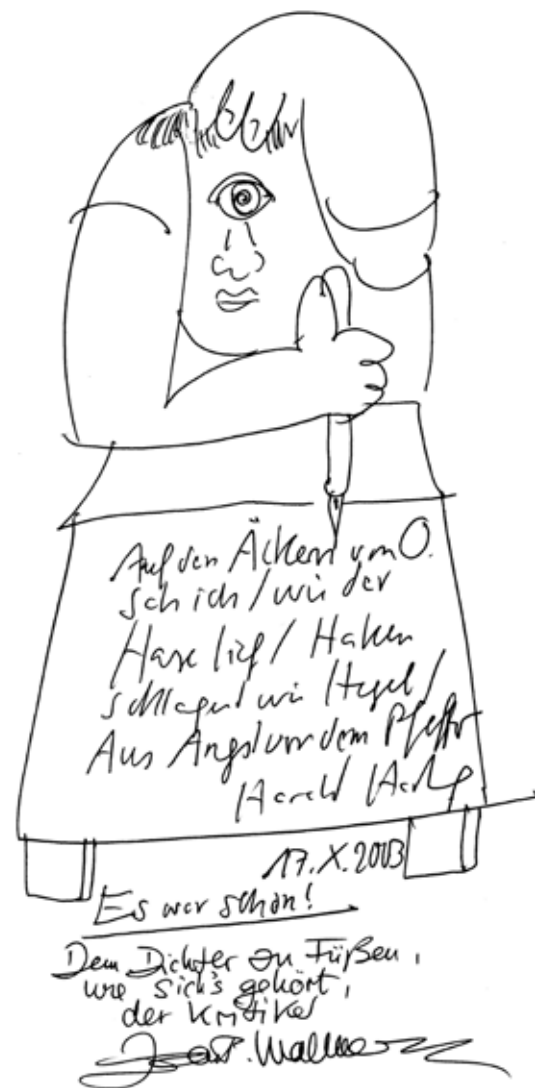 Auf den Äckern von O.
sah ich / wie der
Hase lief / Haken
schlagend wie Hegel /
Aus Angst vor dem Pfeffer
Harald
17.X.2003
Es war schön!
Dem Dichter zu Füßen,
wie sich's gehört,
der Kritiker